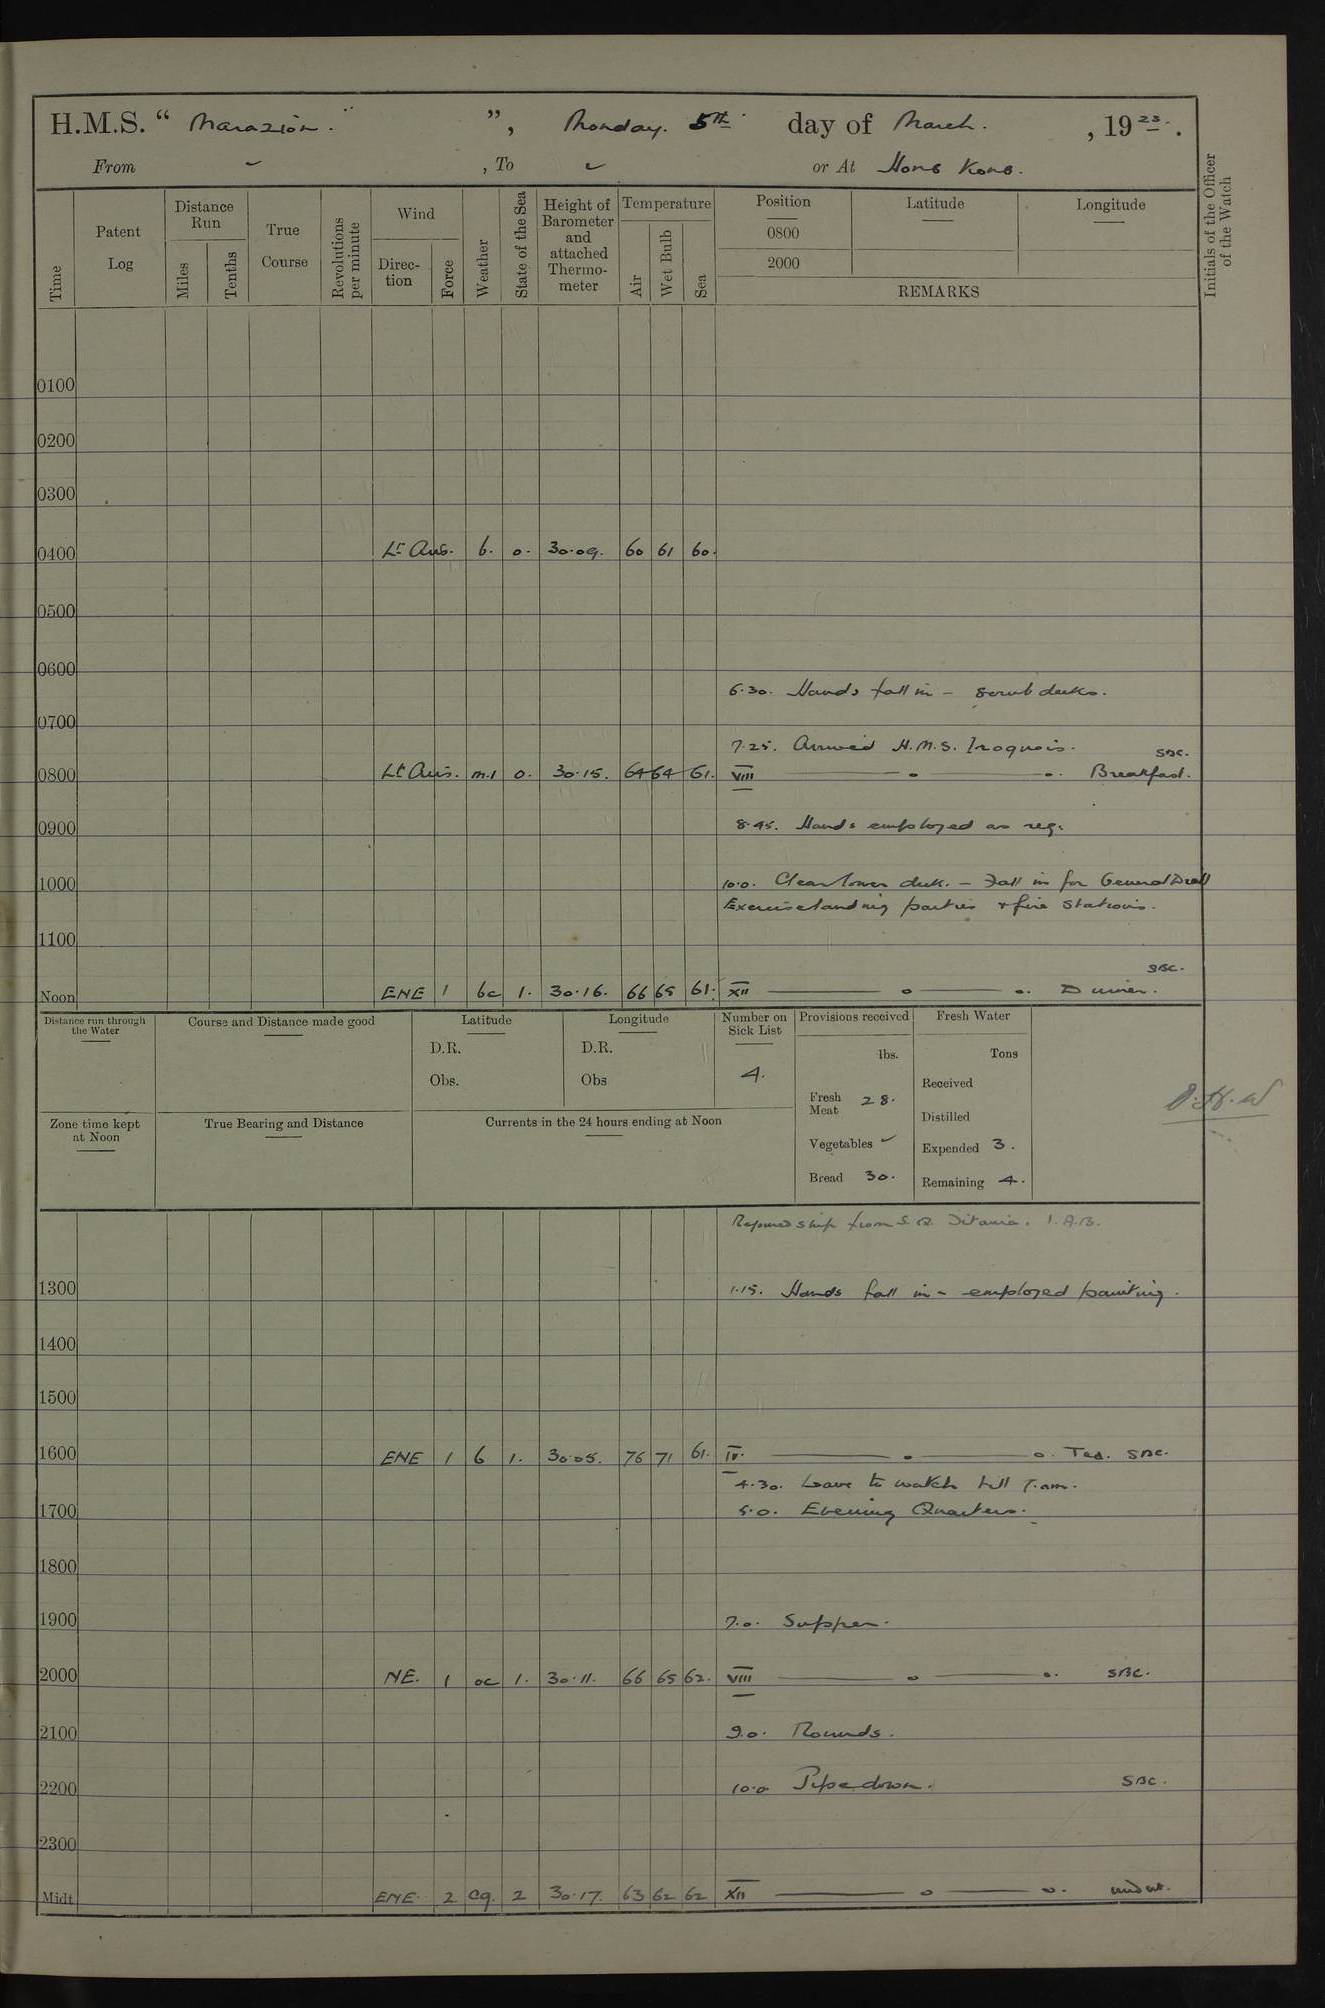 H.M.S. " Marazion. " ", Monday. 5th day of March. , 19 23. .
From ~ , To ~ or At Hong Kong.
Time Patent Log Distance Run Miles Tenths True Course Revolutions per minute Wind Direc-tion Force Weather State of the Sea Height of Barometer and attached Thermo-meter Temperature Air Wet Bulb Sea Position 0800 2000 Latitude Longitude REMARKS Initials of the Officer of the Watch
0100
0200
0300
0400 Lt Airs. b. 0. 30.09. 60 61 60.
0500
0600
6.30. Hands fall in - scrub decks.
0700
7.25. Arrived H.M.S. Iroquois. SBC.
0800 Lt Airs. m.1 0. 30.15. 64 64 61. VIII Breakfast.
0900 8.45. Hands employed as req.
1000 10.0. Clear lower deck. - Fall in for General Drill
Exercise landing parties & fire stations.
1100
SBC.
Noon ENE 1 bc 1. 30.16. 66 65 61. XII Dinner.
Distance run through the Water
Course and Distance made good
Latitude D.R. Obs.
Longitude D.R. Obs
Number on Sick List 4.
Provisions received lbs.
Fresh Meat 28.
Vegetables ~
Bread 30.
Fresh Water Tons
Received
Distilled
Expended 3.
Remaining 4.
Zone time kept at Noon
True Bearing and Distance
Currents in the 24 hours ending at Noon
Rejoined ship from S.B. Titania. 1. A.B.
1300 1.15. Hands fall in - employed painting.
1400
1500
1600 ENE 1 b 1. 30.05. 76 71 61. IV. Tea. SBC.
4.30. Leave to watch till 7.am.
1700 5.0. Evening Quarters.
1800
1900 7.0. Supper.
2000 NE. 1 oc 1. 30.11. 66 65 62. VIII SBC.
2100 9.0. Rounds.
2200 10.0 Pipe down. SBC.
2300
Midt ENE 2 cq. 2 30.17. 63 62 62 XII